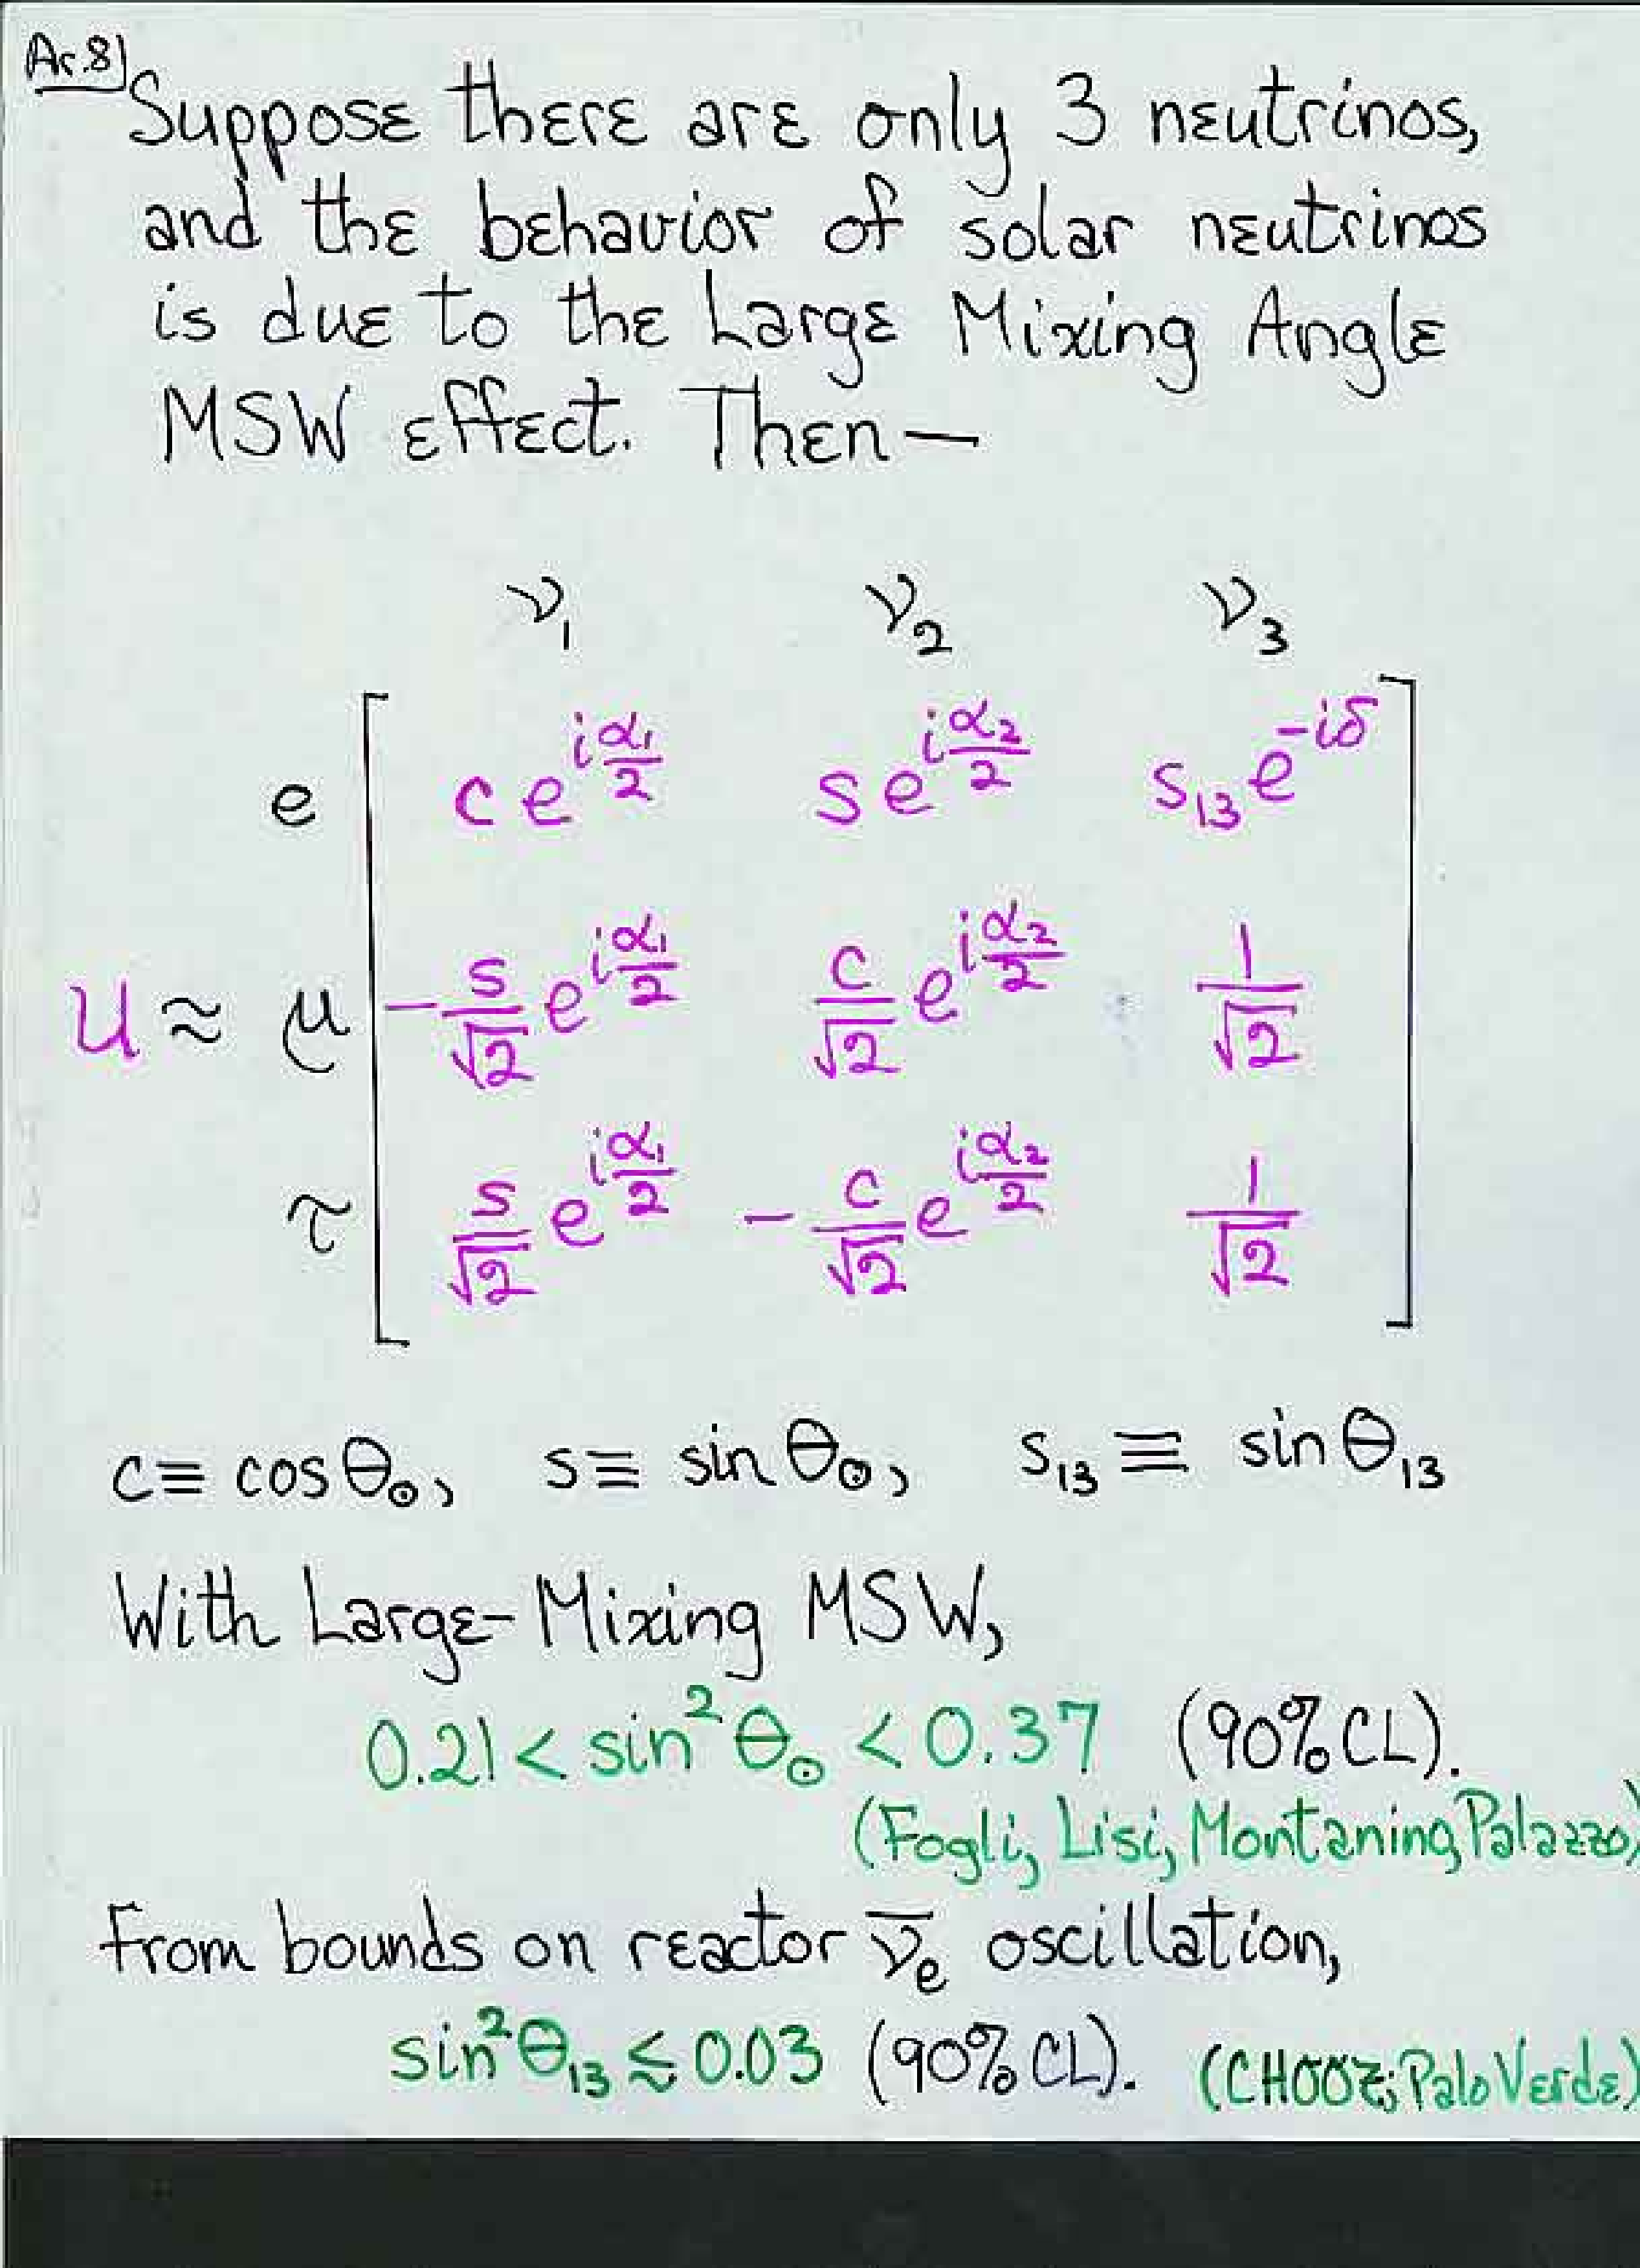 Ar.8)
Suppose there are only 3 neutrinos,
and the behavior of solar neutrinos
is due to the Large Mixing Angle
MSW effect. Then —
ν₁ ν₂ ν₃
e [ c e^{iα₁/2} s e^{iα₂/2} s₁₃ e^{-iδ} ]
U ≈ μ [ -s/√2 e^{iα₁/2} c/√2 e^{iα₂/2} 1/√2 ]
τ [ s/√2 e^{iα₁/2} -c/√2 e^{iα₂/2} 1/√2 ]
c ≡ cos θ☉, s ≡ sin θ☉, s₁₃ ≡ sin θ₁₃
With Large-Mixing MSW,
0.21 < sin² θ☉ < 0.37 (90% CL).
(Fogli, Lisi, Montanino, Palazzo)
From bounds on reactor ν̄e oscillation,
sin²θ₁₃ ≲ 0.03 (90% CL). (CHOOZ; Palo Verde)